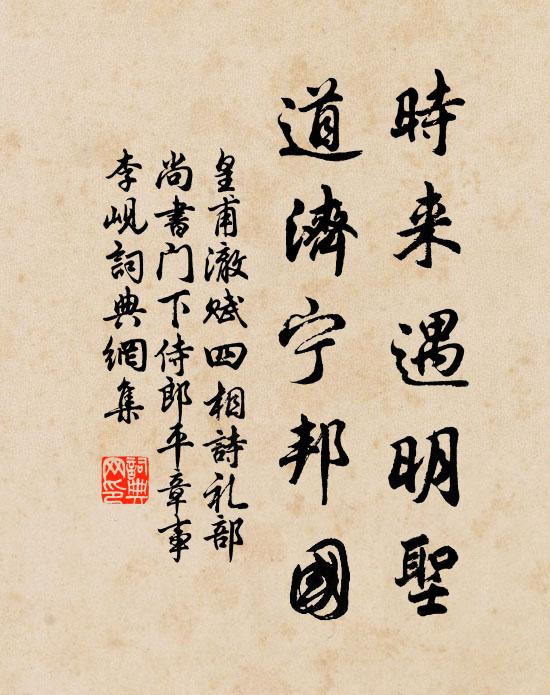 時来遇明聖
道濟宁邦國
皇甫澈赋四相詩礼部
尚書门下侍郎平章事
李峴詞典網集
詞典网印